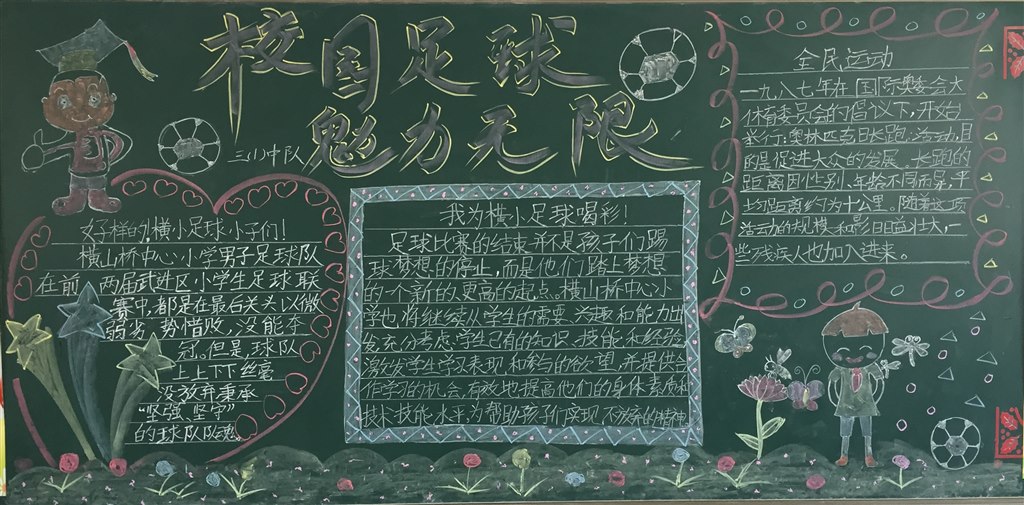 校园足球
魅力无限
三(1)中队
好样的,横小足球小子们!
横山桥中心小学男子足球队
在前两届武进区小学生足球联
赛中,都是在最后关头以微
弱劣势惜败,没能夺
冠。但是,球队
上上下下丝毫
没放弃秉承
“坚强、坚守”
的球队队魂。
我为横小足球喝彩!
足球比赛的结束并不是孩子们踢
球梦想的停止,而是他们踏上梦想
的一个新的、更高的起点。横山桥中心小
学也将继续从学生的需要、兴趣和能力出
发,充分考虑学生已有的知识、技能和经验,
激发学生学习表现和参与的欲望,并提供合
作学习的机会,有效地提高他们的身体素质和
技术技能水平,为帮助孩子们实现不放弃的精神
全民运动
一九八七年在国际奥委会大
体育委员会的倡议下,开始
举行:奥林匹克日长跑。活动目
的是促进大众的发展。长跑的
距离因性别、年龄不同而异,平
均距离约为十公里。随着这项
活动的规模和影日益壮大,一
些残疾人也加入进来。